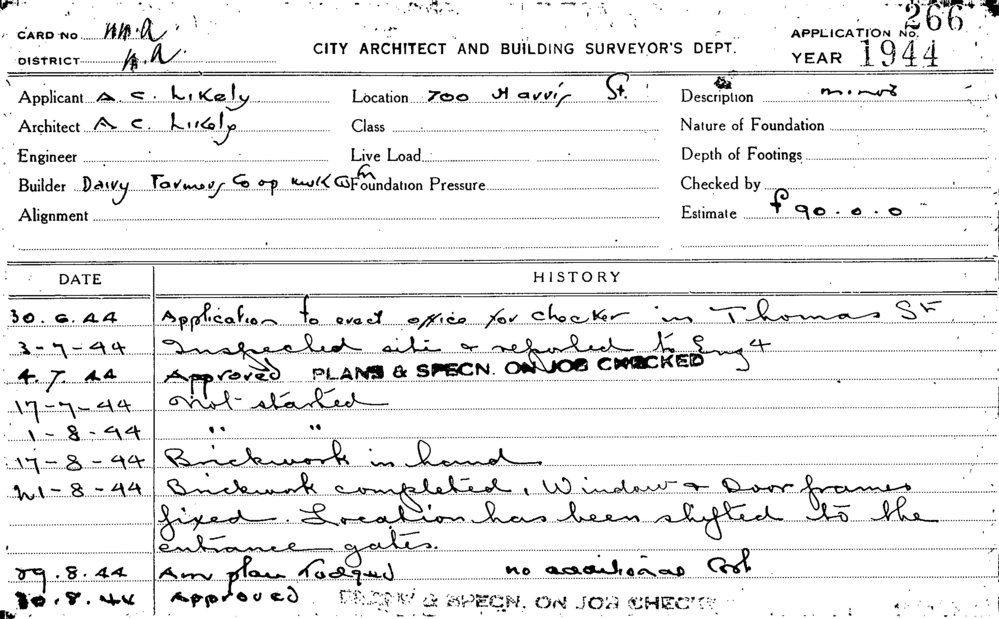 CARD NO
DISTRICT
CITY ARCHITECT AND BUILDING SURVEYOR'S DEPT.
APPLICATION NO. 266
YEAR 1944
Applicant A C. Likely
Location 700 Harris St.
Description minor
Architect A C. Likely
Class
Nature of Foundation
Engineer
Live Load
Depth of Footings
Builder Dairy Farmers Co op milk Co
Foundation Pressure
Checked by
Alignment
Estimate £90.0.0
DATE HISTORY
30.6.44 Application to erect office for checker in Thomas St
3-7-44 Inspected site & reported to
4.7.44 Approved PLANS & SPECN. ON JOB CHECKED
17-7-44 Not started
1-8-44 " "
17-8-44 Brickwork in hand
21-8-44 Brickwork completed, Window & Door frames
fixed. Location has been shifted to the
entrance gates.
29.8.44 Am plan lodged no additional Cost
30.8.44 Approved & SPECN. ON JOB